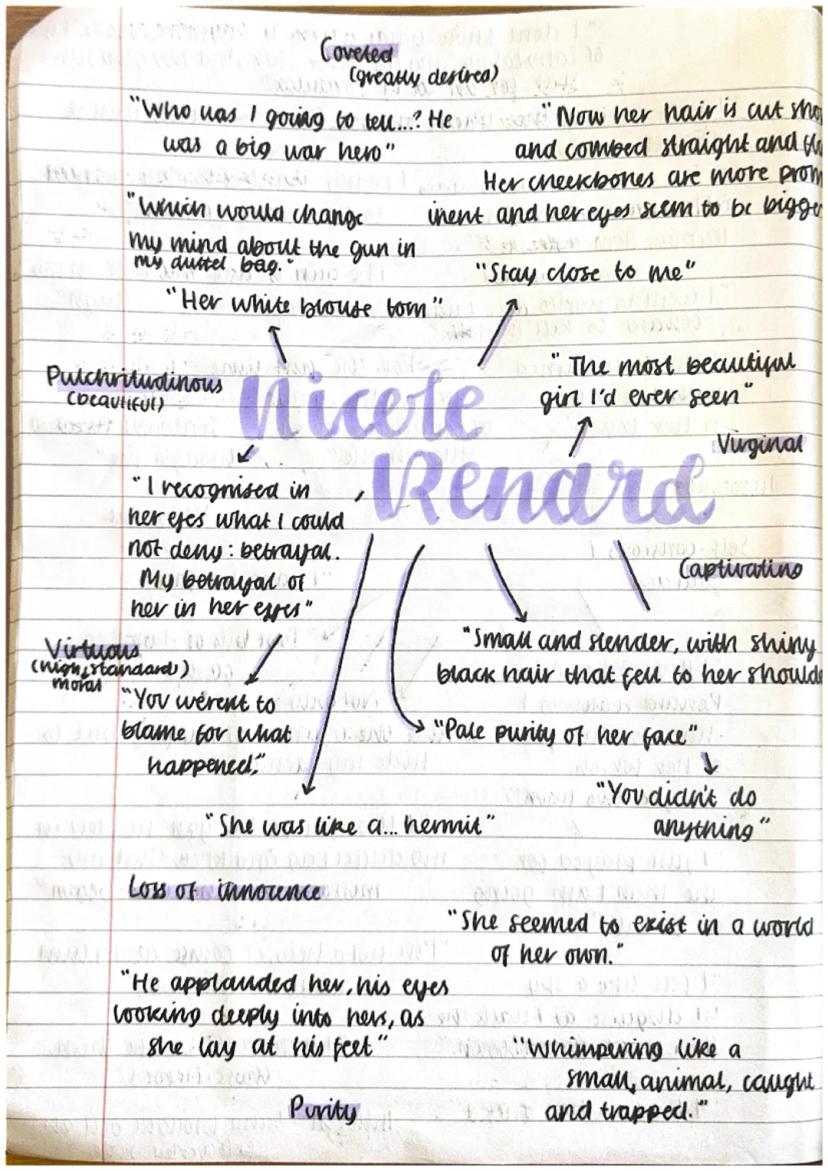 Coveted
(greatly desired)
"Who was I going to tell...? He
was a big war hero"
"Now her hair is cut sho
and combed straight and
Her cheekbones are more prom
inent and her eyes seem to be bigge
"Which would change
my mind about the gun in
my duffel bag."
"Stay close to me"
"Her white blouse torn"
Pulchritudinous
(beautiful)
"The most beautiful
girl I'd ever seen"
Nicole
Renard
Virginal
"I recognised in
her eyes what I could
not deny: betrayal.
My betrayal of
her in her eyes"
Captivating
Virtuous
(high standard)
moral
"Small and slender, with shiny
black hair that fell to her shoulde
"You weren't to
blame for what
happened."
"Pale purity of her face"
"You didn't do
anything"
"She was like a... hermit"
Loss of innocence
"She seemed to exist in a world
of her own."
"He applauded her, his eyes
looking deeply into hers, as
she lay at his feet"
"Whimpering like a
small, animal, caught
and trapped."
Purity